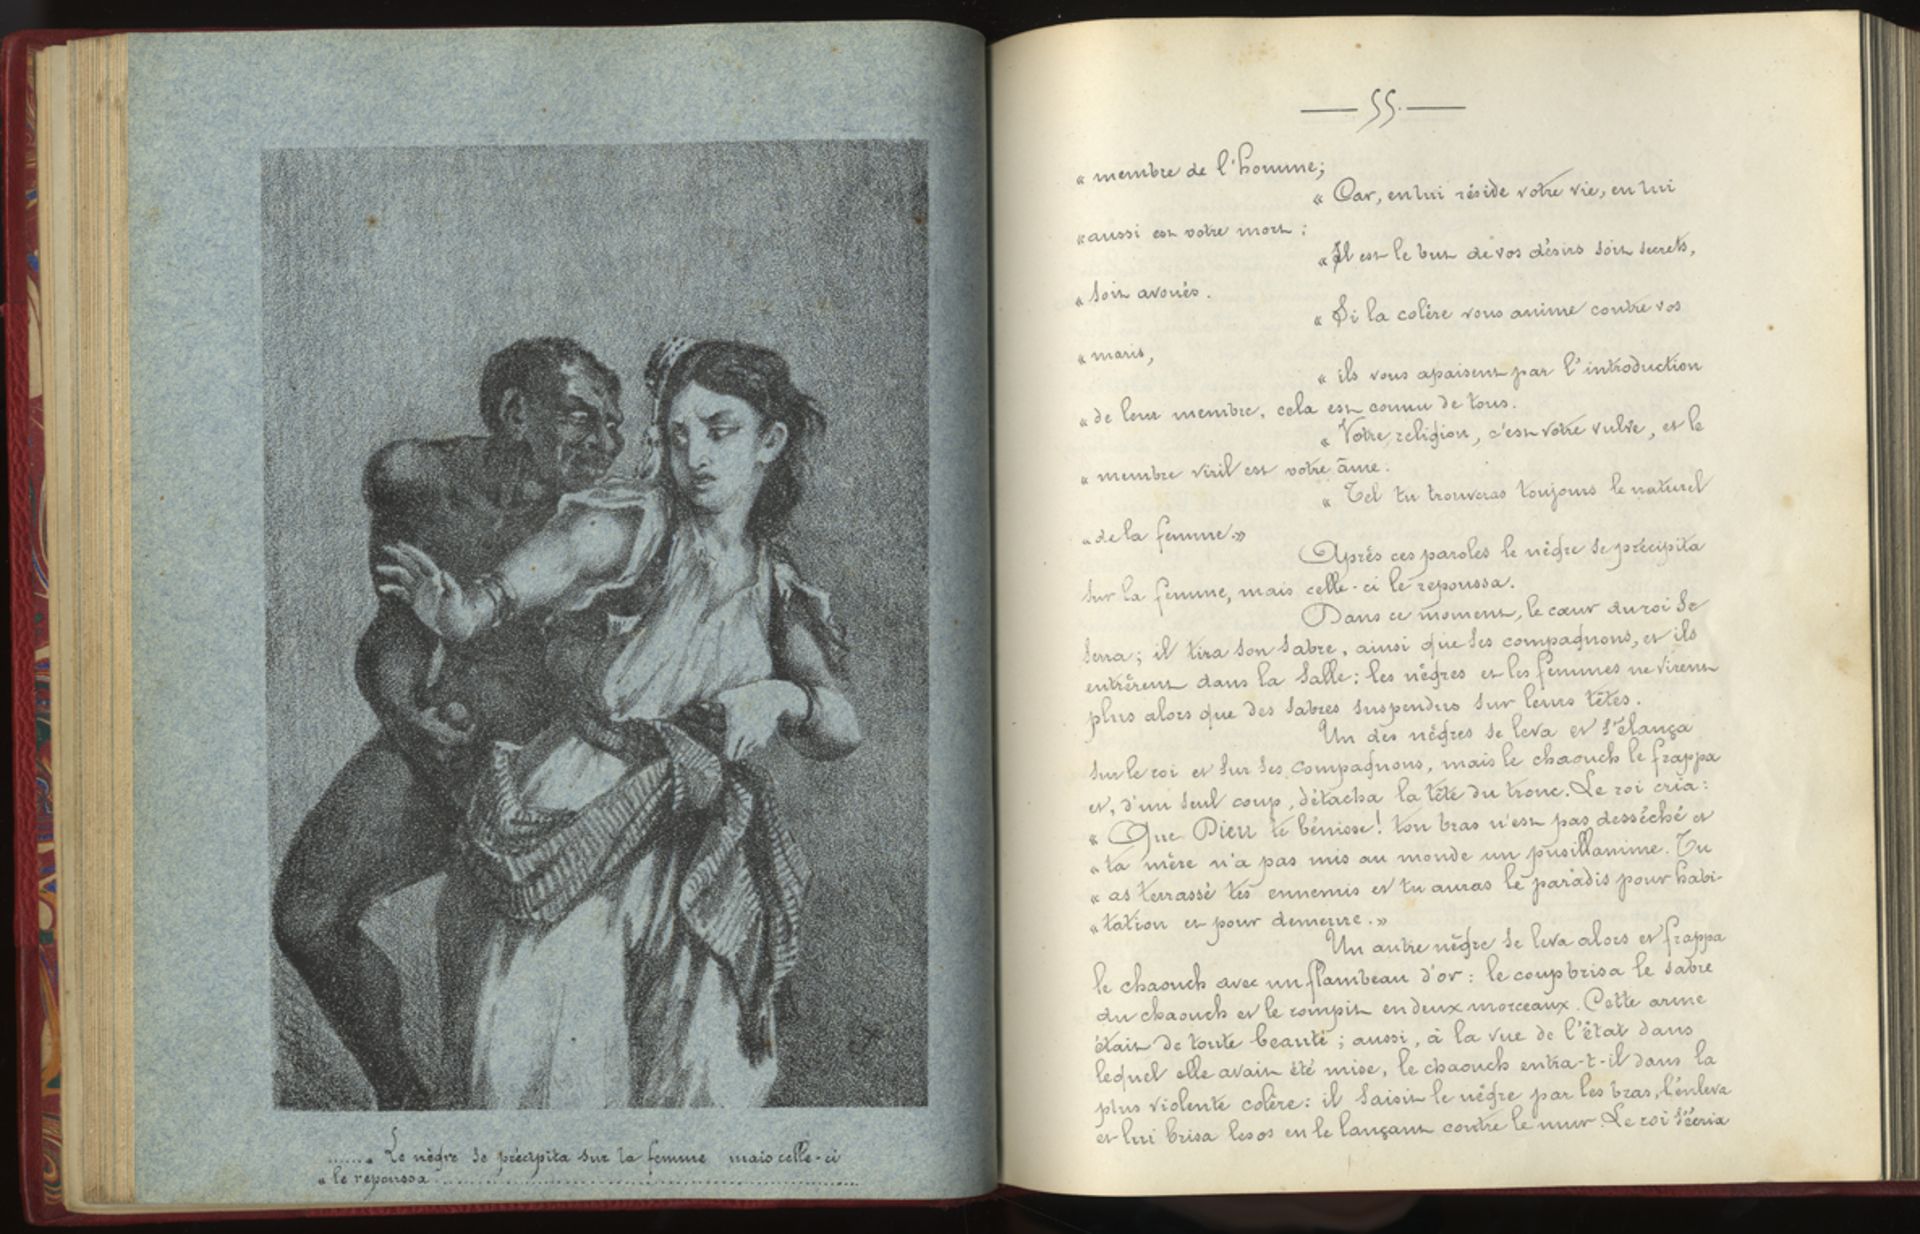 ....... Le nègre se précipita sur la femme mais celle-ci
« le repoussa...............................................................
— 55. —
« membre de l'homme;
« Car, en lui réside votre vie, en lui
« aussi est votre mort :
« Il est le but de vos désirs soit secrets,
« soit avoués.
« Si la colère vous anime contre vos
« maris,
« ils vous apaisent par l'introduction
« de leur membre, cela est connu de tous.
« Votre religion, c'est votre vulve, et le
« membre viril est votre âme.
« Tel tu trouveras toujours le naturel
« de la femme.»
Après ces paroles le nègre se précipita
sur la femme, mais celle-ci le repoussa.
Dans ce moment, le cœur du roi se
serra; il tira son sabre, ainsi que ses compagnons, et ils
entrèrent dans la salle; les nègres et les femmes ne virent
plus alors que des sabres suspendus sur leurs têtes.
Un des nègres se leva et s'élança
sur le roi et sur ses compagnons, mais le chaouch le frappa
et, d'un seul coup, détacha la tête du tronc. Le roi cria :
« Que Dieu te bénisse! ton bras n'est pas desséché et
« ta mère n'a pas mis au monde un pusillanime. Tu
« as terrassé tes ennemis et tu auras le paradis pour habi-
« tation et pour demeure.»
Un autre nègre se leva alors et frappa
le chaouch avec un flambeau d'or : le coup brisa le sabre
du chaouch et le rompit en deux morceaux. Cette arme
était de toute beauté; aussi, à la vue de l'état dans
lequel elle avait été mise, le chaouch entra-t-il dans la
plus violente colère: il saisit le nègre par les bras, l'enleva
et lui brisa les os en le lançant contre le mur. Le roi s'écria